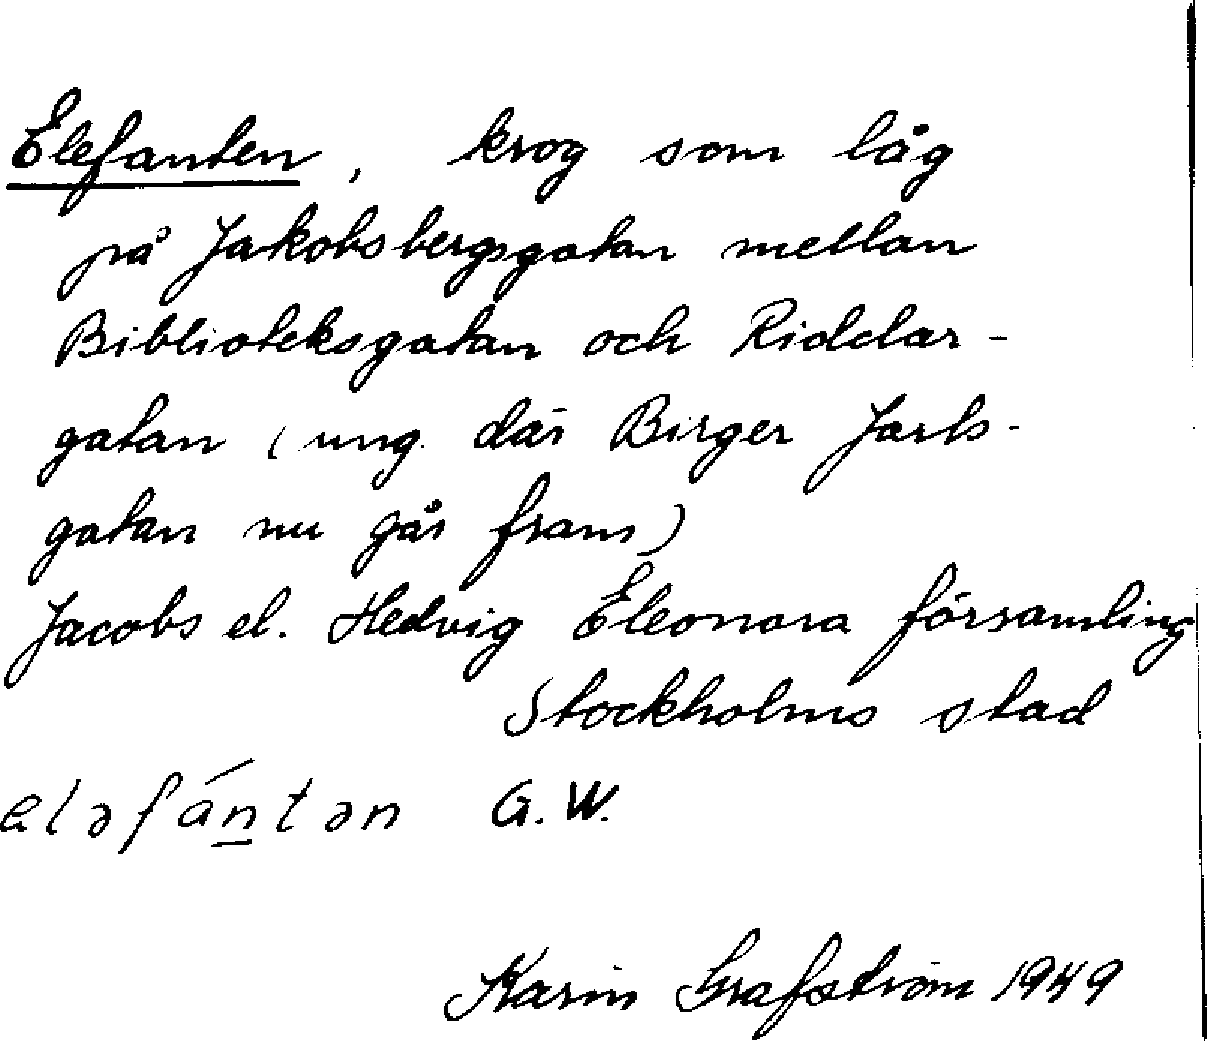 Elefanten, krog som låg
på Jakobsbergsgatan mellan
Biblioteksgatan och Riddar-
gatan (ung. där Birger Jarls-
gatan nu går fram)
Jacobs el. Hedvig Eleonora församling
Stockholms stad
eləfán̲tən G.W.
Karin Grafström 1949